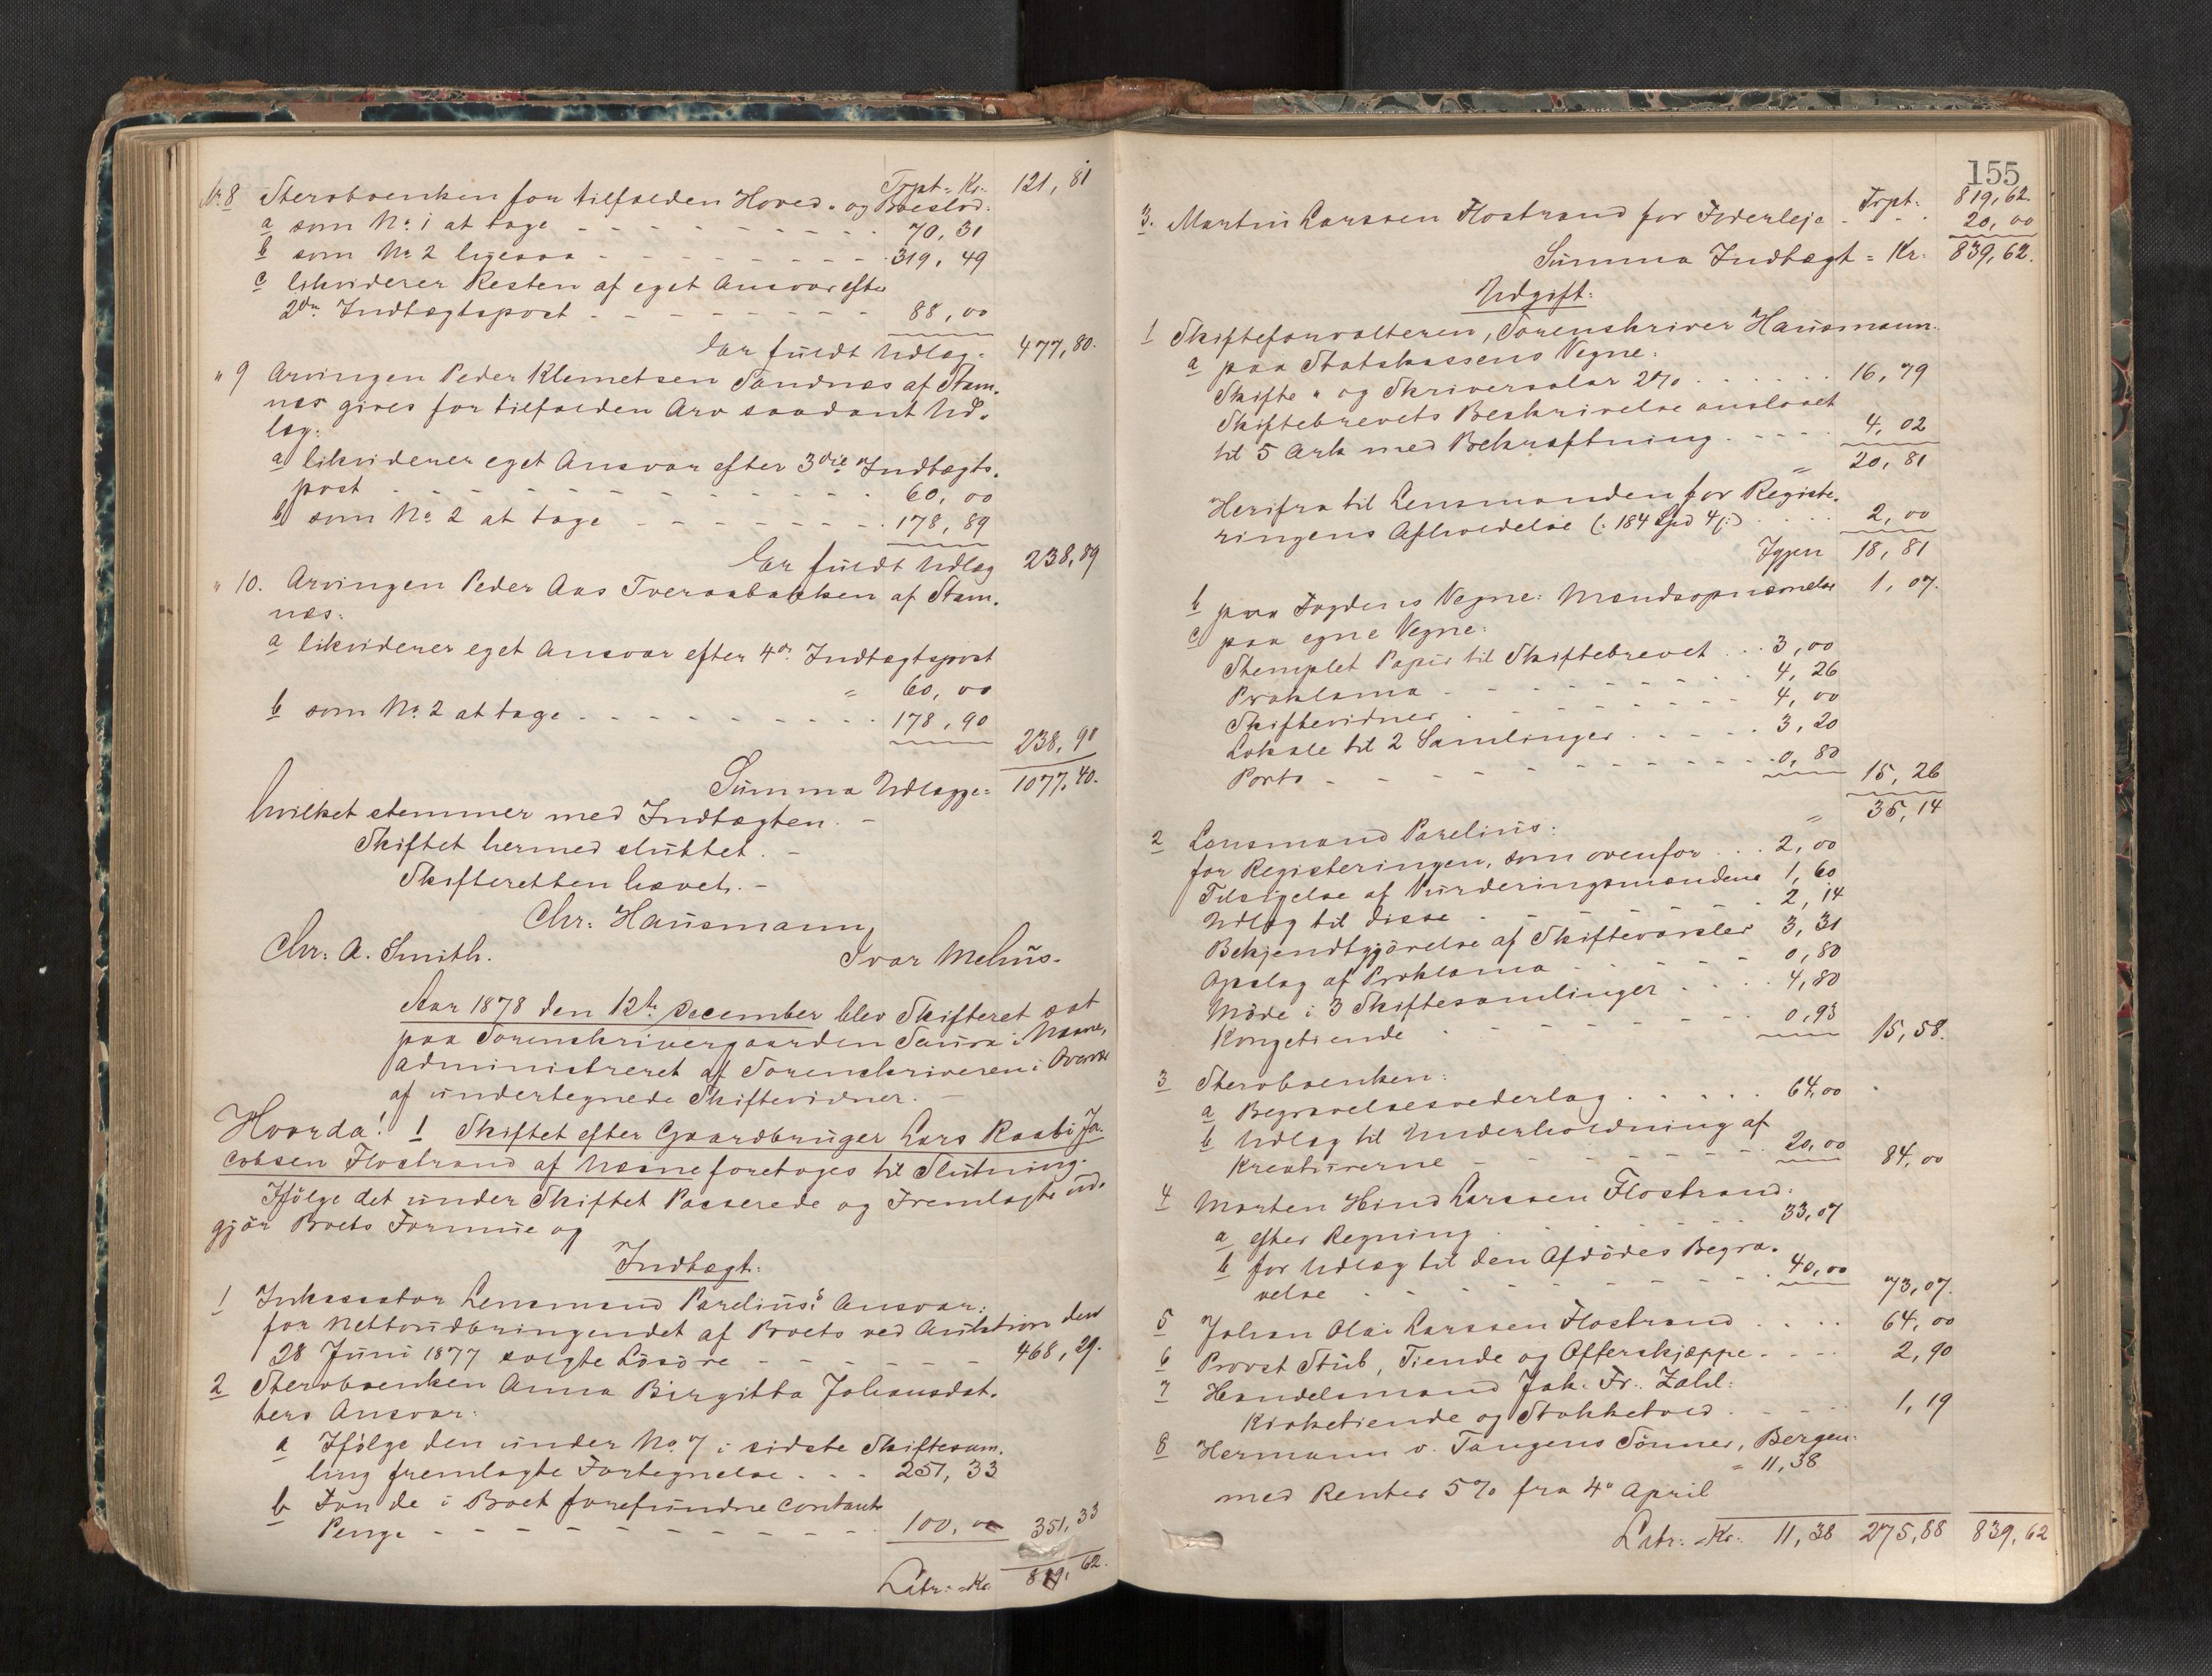 Trpt = Kr. 121,81
No 8 Stervboenken for tilfalden Hoved- og Broeslod:
a som No 1 at tage - - - 70,31
b som No 2 ligesaa - - - 319,49
c likviderer Resten af eget Ansvar efter
2den Indtægtspost - - - 88,00
Er fuldt Udlæg. 477,80.
" 9 Arvingen Peder Klemetsen Sandnæs af Stam-
næs gives for tilfalden Arv saadant Ud-
læg:
a likviderer eget Ansvar efter 3die Indtægts-
post - - - 60,00
b som No 2 at tage - - - 178,89
Er fuldt Udlæg 238,89
" 10. Arvingen Peder Aas Tveraabakken af Stam-
næs:
a likviderer eget Ansvar efter 4de Indtægtspost
= 60,00
b som No 2 at tage - - - 178,90
238,90
Summa Udlægge = 1077,40.
hvilket stemmer med Indtægten. -
Skiftet hermed sluttet. -
Skifteretten hævet. -
Chr: Hausmann
Chr: A. Smith. Ivar Melhus.
Aar 1878 den 12te December blev Skifteret sat
paa Sorenskrivergaarden Saura i Næsne,
administreret af Sorenskriveren i Overvær
af undertegnede Skiftevidner. -
Hvorda! 1 Skiftet efter Gaardbruger Lars Raabi Ja-
cobsen Flostrand af Næsne foretoges til Slutning.
Ifølge det under Skiftet Passerede og Fremlagte ud-
gjør Boets Formue og
Indtægt:
1 Inkassator Lensmand Parelius's Ansvar:
for Nettoudbringendet af Boets ved Auktion den
28 Juni 1877 solgte Løsøre - - - 468,29.
2 Stervboenken Anna Birgitta Johansdat-
ters Ansvar:
a Ifølge den under No 7 i sidste Skiftesam-
ling fremlagte Fortegnelse . . . 251,33
b For de i Boet forefundne contante
Penge - - - 100,00 351,33
Latr: = Kr. 819,62.
155
Trpt: 819,62.
3. Martin Larssen Flostrand for Foderleje . . . 20,00
Summa Indtægt = Kr. 839,62.
Udgift:
1 Skifteforvalteren, Sorenskriver Hausmann:
a paa Statskassens Vegne:
Skifte- og Skriversalar 2% . . . 16,79
Skiftebrevets Beskrivelse anslaaet
til 5 Ark med Bekræftning . . . 4,02
= 20,81
Herifra til Lensmanden for Registe-
ringens Afholdelse (: 184 Spd 4 :) . . . 2,00
Igjen 18,81
b paa Fogdens Vegne: Mændsopnævnelse 1,07.
c paa egne Vegne:
Stemplet Papir til Skiftebrevet . . . 3,00
Proklama - - - 4,26
Skiftevidner - - - 4,00
Lokale til 2 Samlinger . . . 3,20
Porto - - - 0,80
15,26
= 35,14
2 Lensmand Parelius:
for Registeringen, som ovenfor . . . 2,00
Tilsigelse af Vurderingsmændene 1,60
Udlæg til disse - - - 2,14
Bekjendtgjørelse af Skiftevarsler 3,31
Opslag af Proklama - - - 0,80
Møde i 3 Skiftesamlinger . . . 4,80
Kongetiende - - - 0,93
15,58.
3 Stervboenken:
a Begravelsesvederlag . . . 64,00
b Udlæg til Underholdning af
Kreaturerne - - - 20,00 84,00
4 Morten Hind Larssen Flostrand:
a efter Regning . . . 33,07
b for Udlæg til den Afdødes Begra-
velse . . . 40,00 73,07.
5 Johan Olai Larssen Flostrand . . . 64,00
6 Provst Stub, Tiende og Offerskjæppe . . . 2,90
7 Handelsmand Joh. Fr. Zahl:
Kirketiende og Stokketold . . . 1,19
8 Hermann v. Tangens Sønner, Bergen:
= 11,38
med Renter 5% fra 4de April
Latr: = Kr. 11,38 275,88 839,62